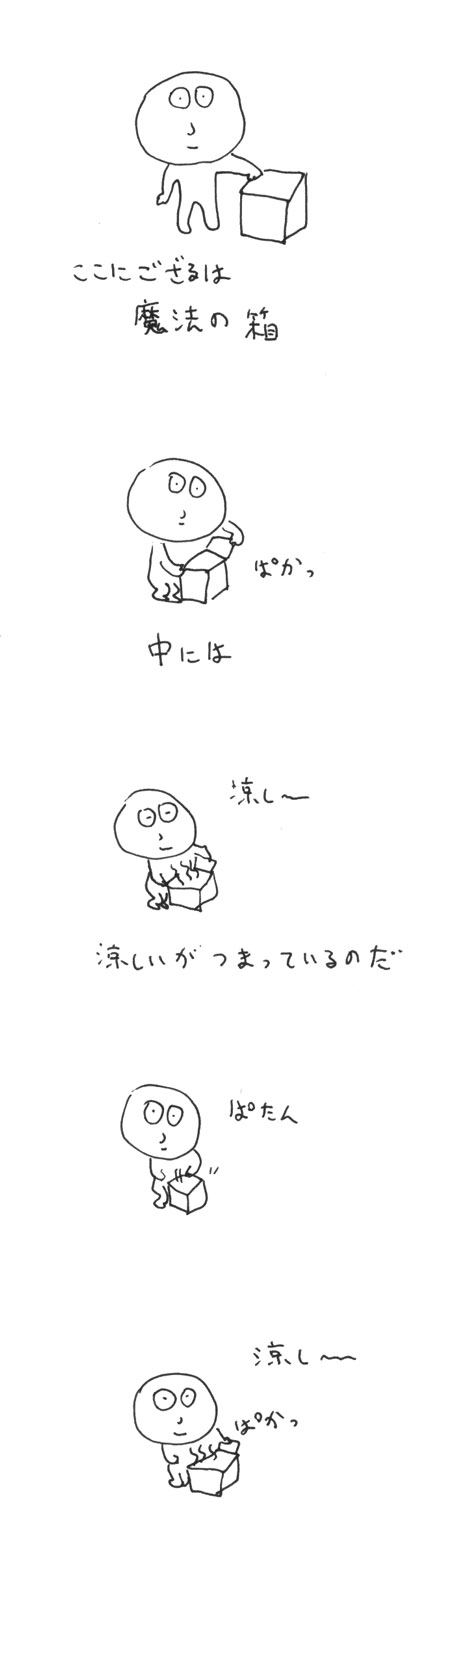 ここにござるは
魔法の箱
ぱかっ
中には
涼し〜
涼しいがつまっているのだ
ぱたん
涼し〜
ぱかっ